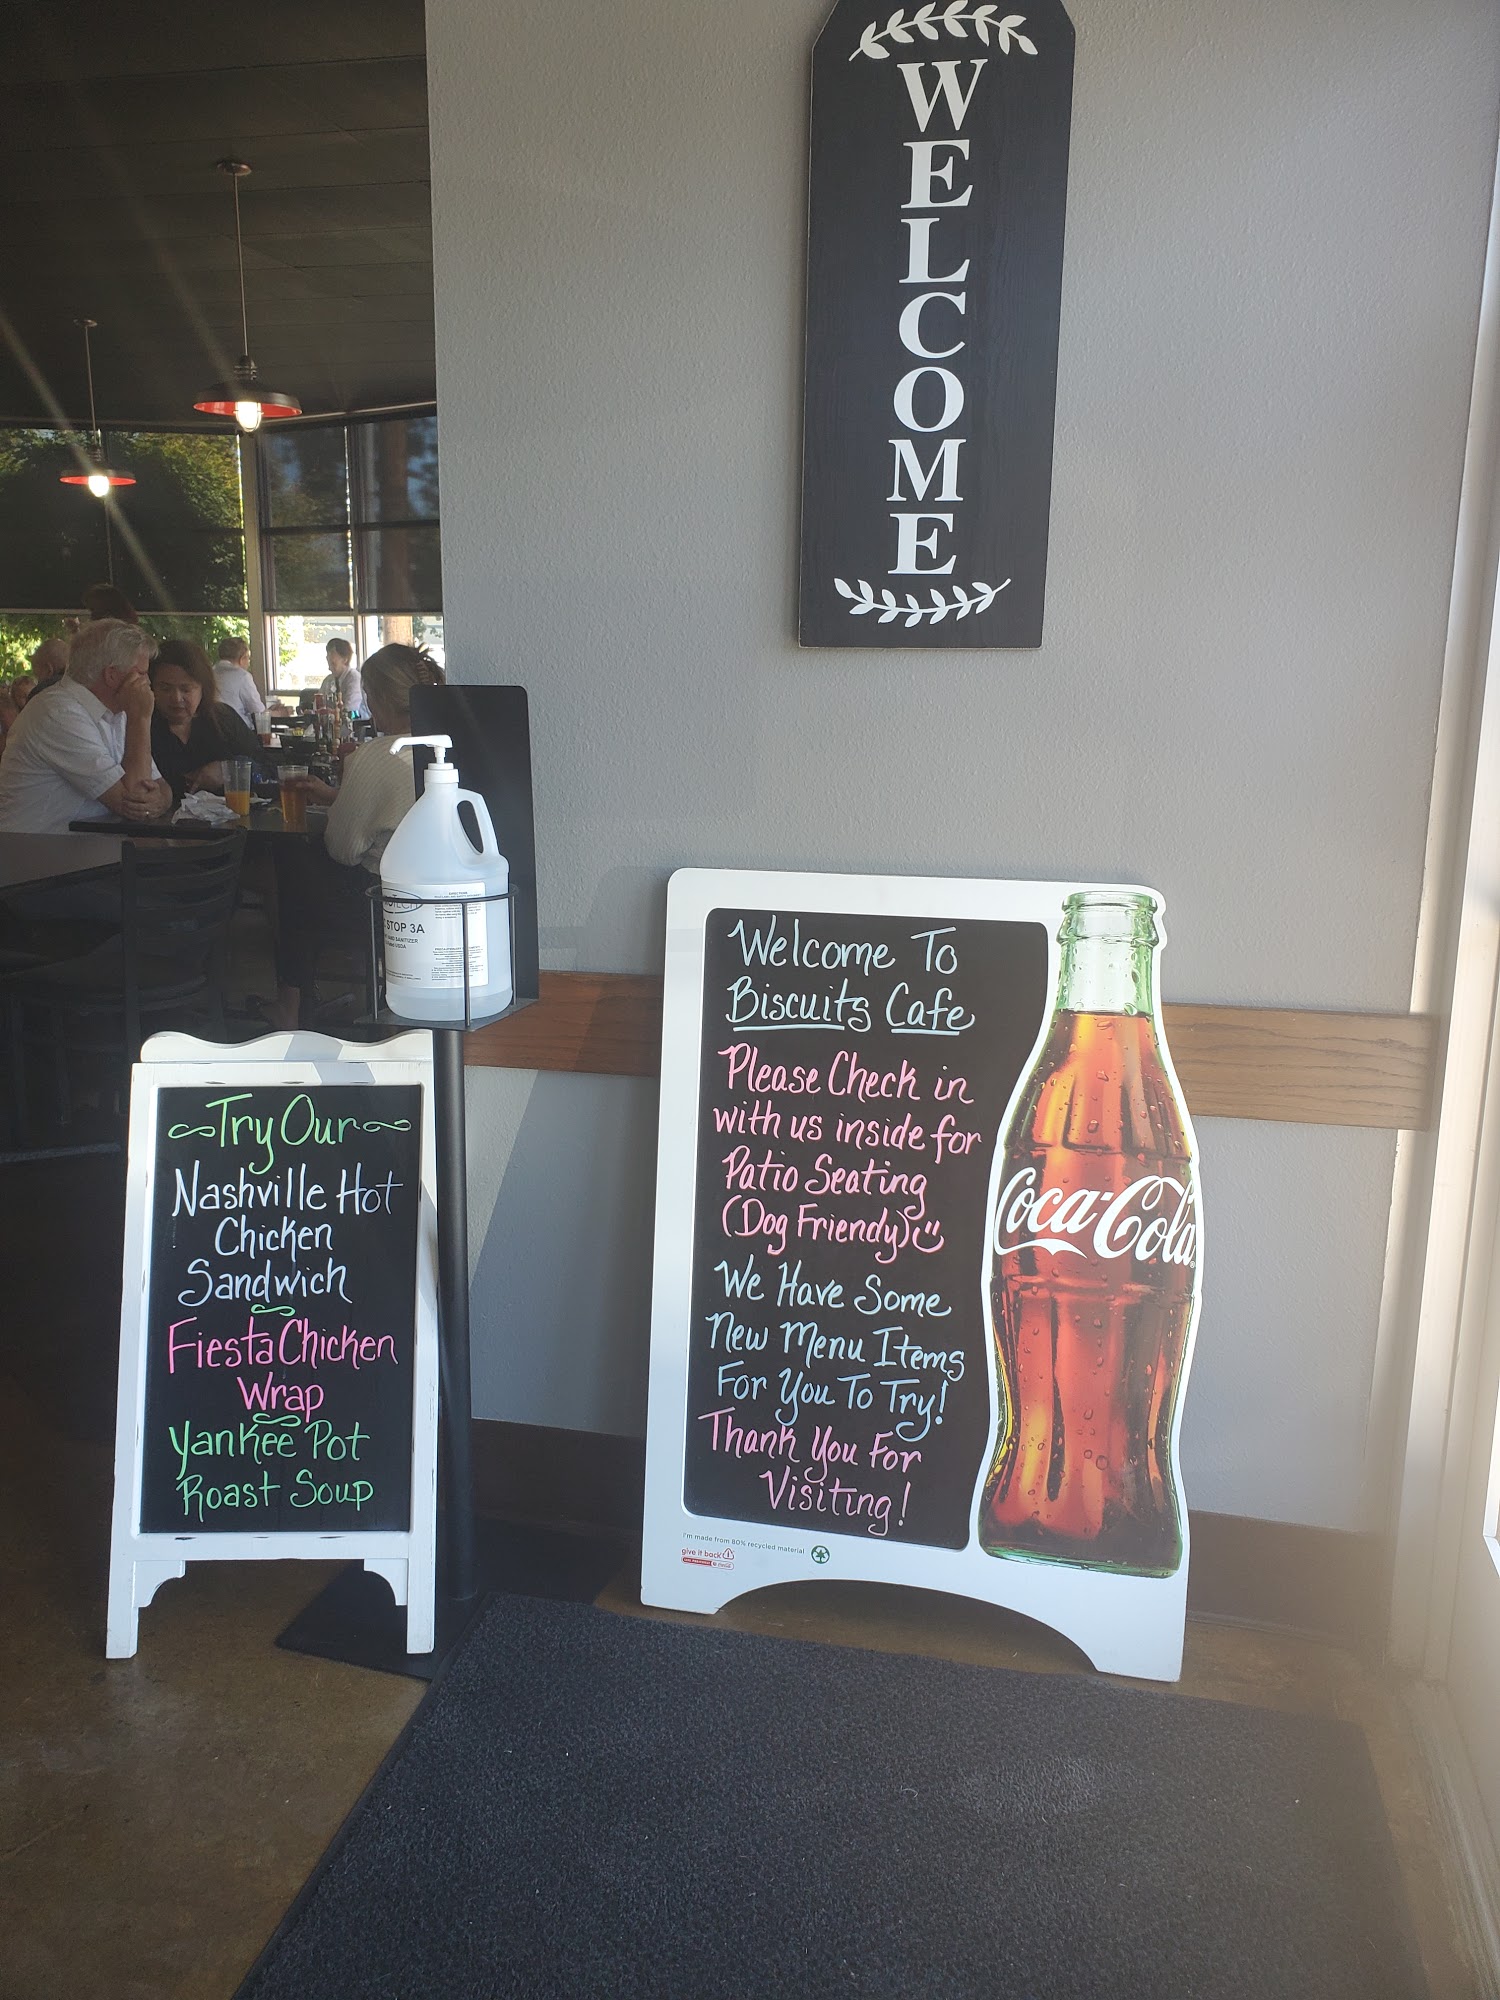 WELCOME
STOP 3A
Welcome To
Biscuits Cafe
Please Check in
with us inside for
Patio Seating
(Dog Friendy)
We Have Some
New Menu Items
For You To Try!
Thank You For
Visiting!
Coca-Cola
I'm made from 80% recycled material
give it back
Try Our
Nashville Hot
Chicken
Sandwich
Fiesta Chicken
Wrap
Yankee Pot
Roast Soup